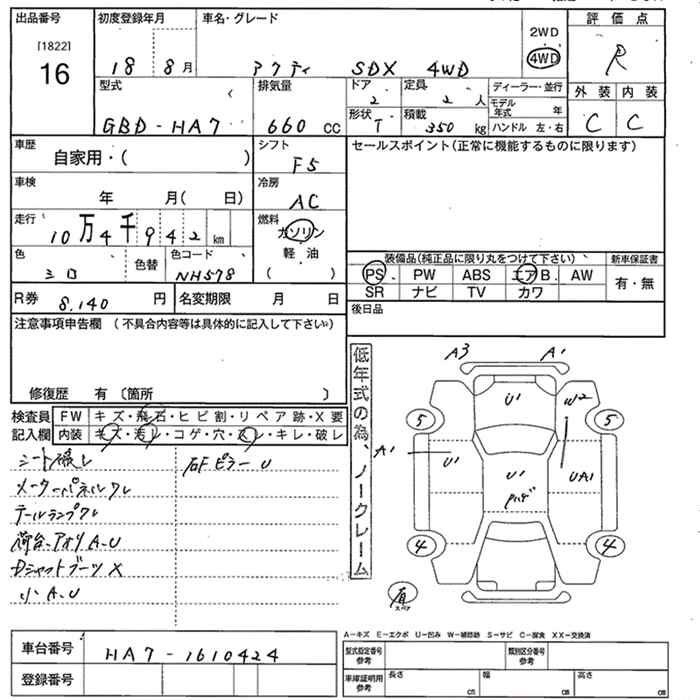 出品番号
[1822]
16
初度登録年月
18 8月
車名・グレード
アクティ SDX 4WD
2WD
4WD
評価点
R
外装 内装
C C
型式
GBD-HA7
排気量
660 cc
ドア
2
形状
T
定員
2 人
積載
350 kg
ディーラー・並行
モデル年式 年
ハンドル 左・右
車歴
自家用・( )
シフト
F5
セールスポイント(正常に機能するものに限ります)
車検
年 月( 日)
冷房
AC
走行
10万4千942 km
燃料
ガソリン
軽油
( )
色
シロ
色替
色コード
NH578
装備品(純正品に限り丸をつけて下さい)
PS PW ABS エアB. AW
SR ナビ TV カワ
新車保証書
有・無
R券 8,140 円
名変期限 月 日
後日品
注意事項申告欄 (不具合内容等は具体的に記入して下さい)
修復歴 有 〔箇所 〕
検査員
記入欄
FW キズ・飛石・ヒビ割・リペア跡・X要
内装 キズ・汚レ・コゲ・穴・スレ・キレ・破レ
シート破レ
メーターパネルワレ
テールランプワレ
荷台、アオリA.U
DシャフトブーツX
小A.U
右FピラーU
低年式の為、ノークレーム
A3 A1
U1 W2
5 5
A1 U1 U1 UA1
4 4
有
スペア
A-キズ E-エクボ U-凹み W-補修跡 S-サビ C-腐食 XX-交換済
車台番号 HA7-1610424
登録番号
型式指定番号
参考
類別区分番号
参考
車庫証明用
参考
長さ cm 幅 cm 高さ cm